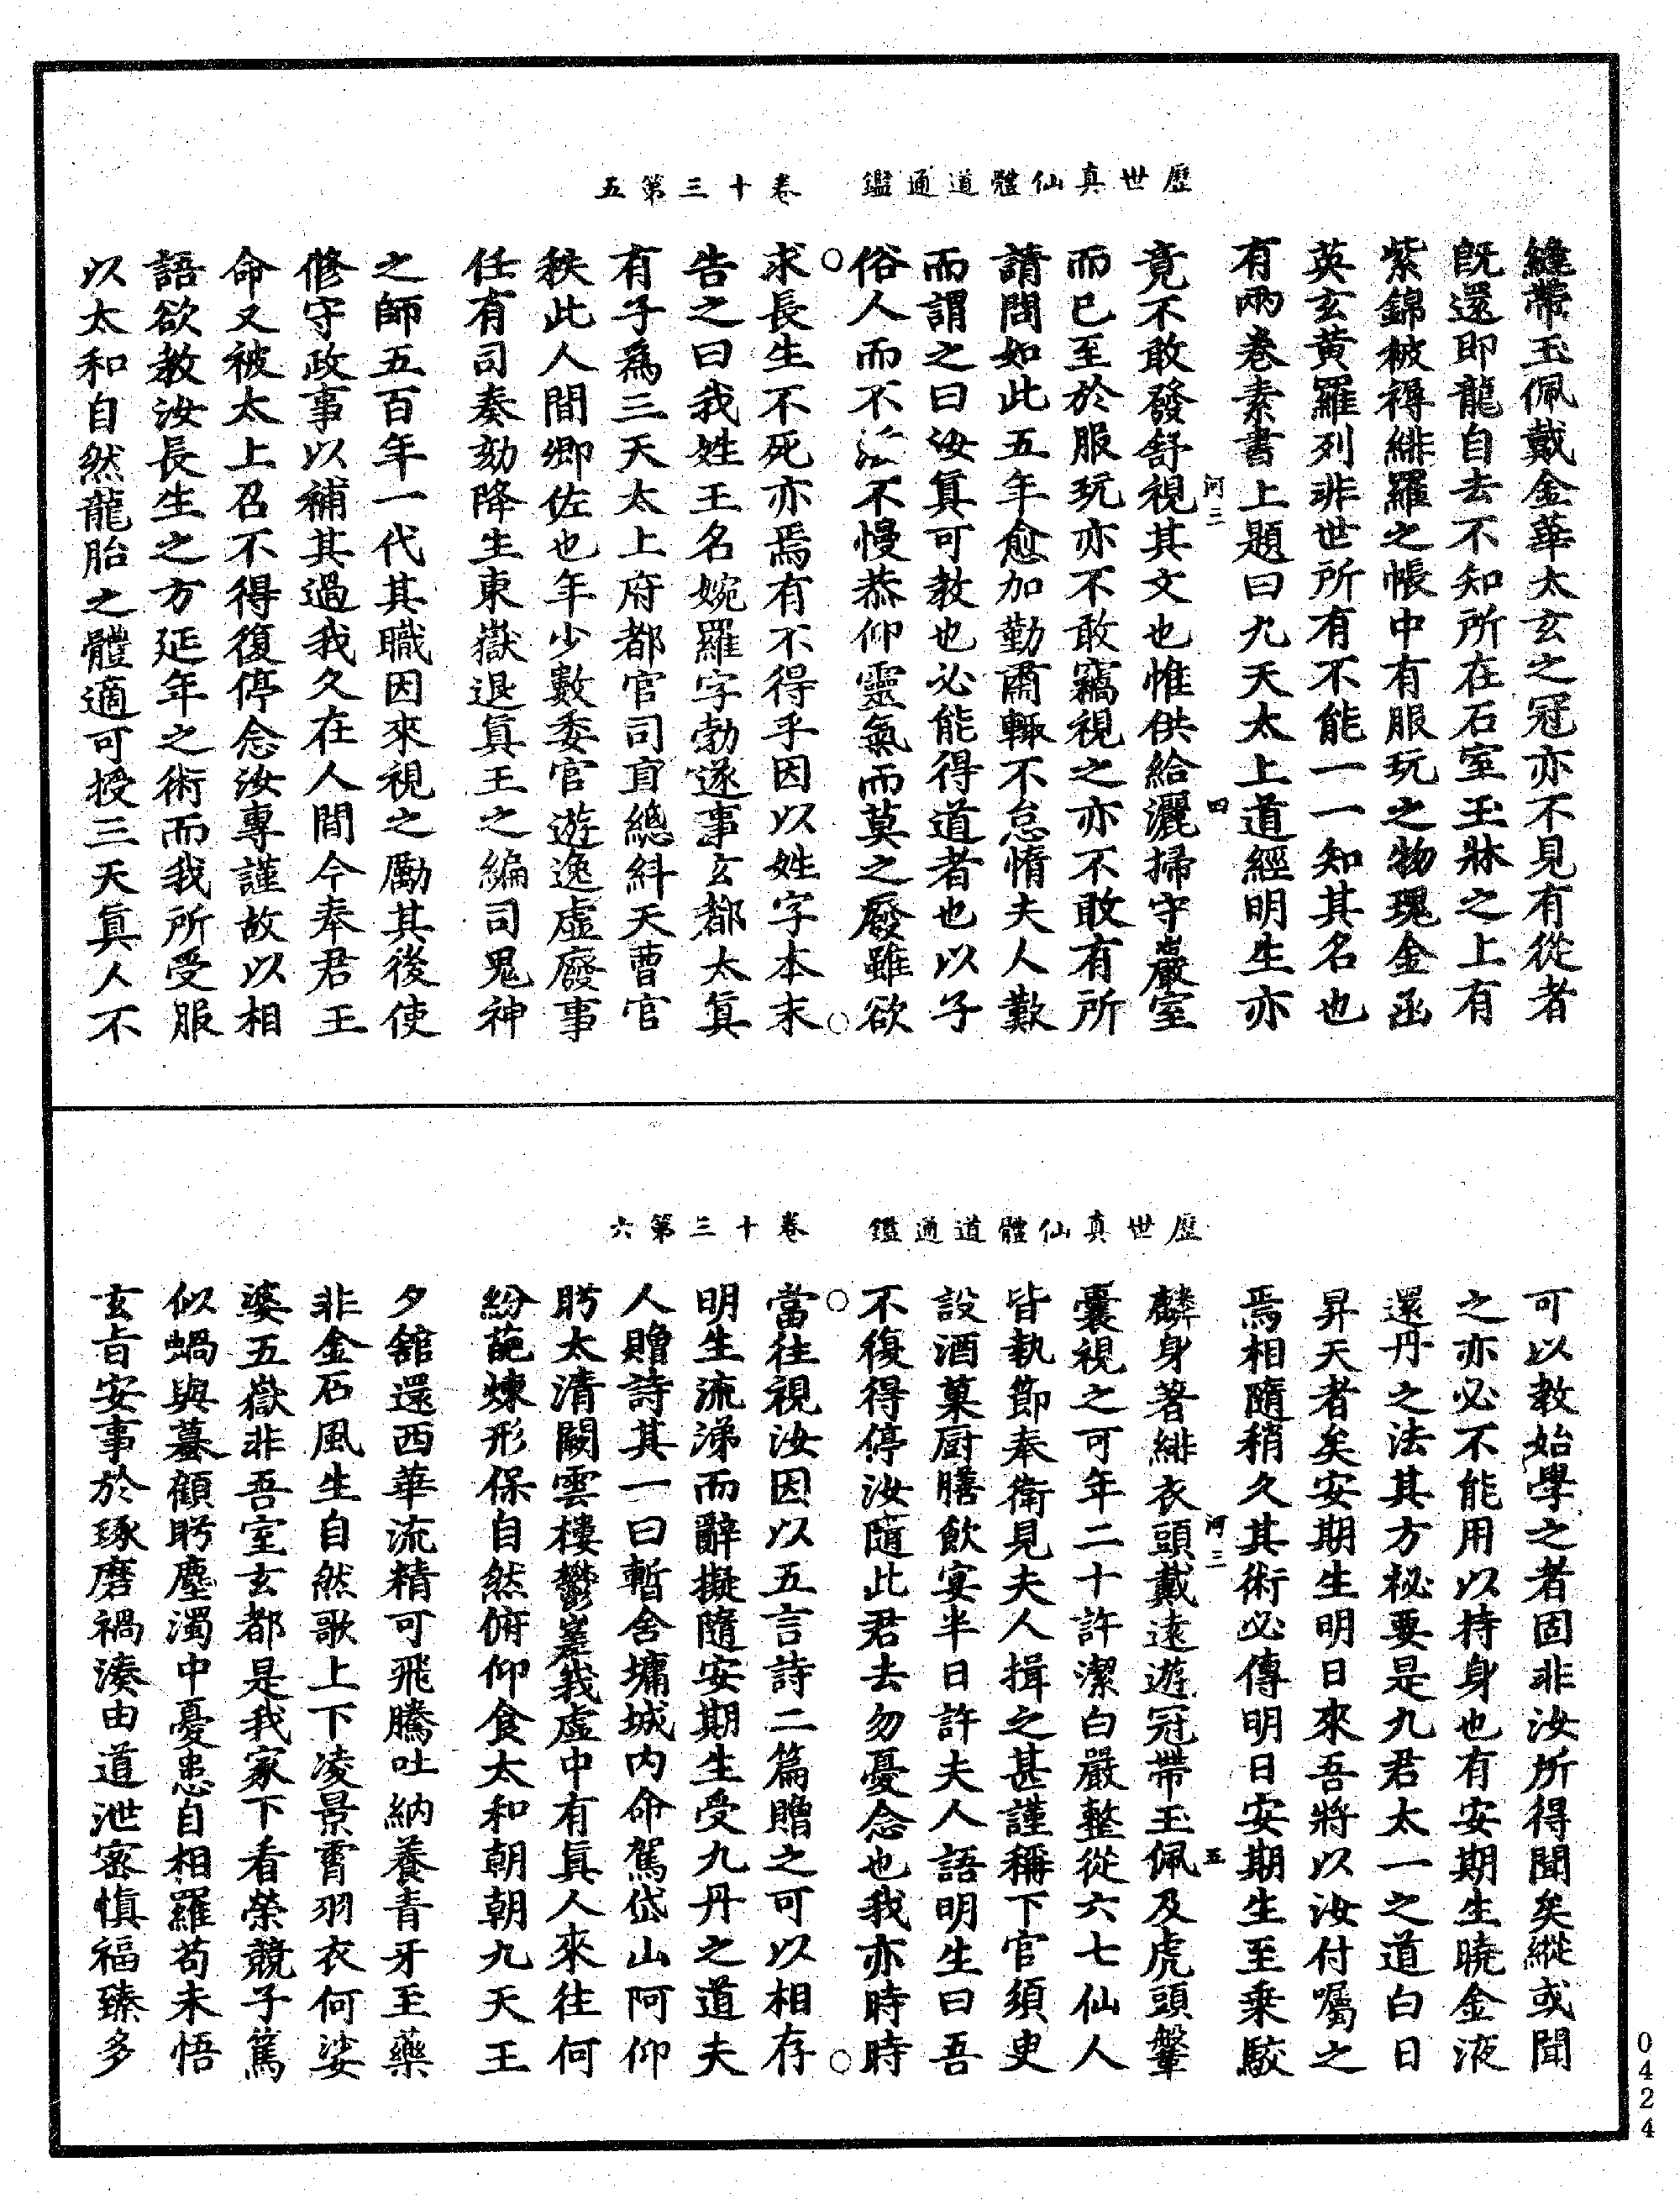 歷世真仙體道通鑑　卷十三第五
縫帶玉佩戴金華太玄之冠亦不見有從者
既還即龍自去不知所在石室玉牀之上有
紫錦被褥緋羅之帳中有服玩之物瑰金函
英玄黃羅列非世所有不能一一知其名也
有兩卷素書上題曰九天太上道經明生亦
河三　四
竟不敢發舒視其文也惟供給灑掃守巖室
而已至於服玩亦不敢竊視之亦不敢有所
請問如此五年愈加勤肅輒不怠惰夫人歎
而謂之曰汝真可教也必能得道者也以子
俗人而不不慢恭仰靈氣而莫之廢雖欲
求長生不死亦焉有不得乎因以姓字本末
告之曰我姓王名婉羅字勃遂事玄都太真
有子為三天太上府都官司直總糾天曹官
秩此人間卿佐也年少數委官遊逸虛廢事
任有司奏劾降生東嶽退真王之編司鬼神
之師五百年一代其職因來視之勵其後使
修守政事以補其過我久在人間今奉君王
命又被太上召不得復停念汝專謹故以相
語欲教汝長生之方延年之術而我所受服
以太和自然龍胎之體適可授三天真人不
歷世真仙體道通鑑　卷十三第六
可以教始學之者固非汝所得聞矣縱或聞
之亦必不能用以持身也有安期生曉金液
還丹之法其方祕要是九君太一之道白日
昇天者矣安期生明日來吾將以汝付囑之
焉相隨稍久其術必傳明日安期生至乘駮
河三　五
麟身著緋衣頭戴遠遊冠帶玉佩及虎頭鞶
囊視之可年二十許潔白嚴整從六七仙人
皆執節奉衛見夫人揖之甚謹稱下官須臾
設酒菓廚膳飲宴半日許夫人語明生曰吾
不復得停汝隨此君去勿憂念也我亦時時
當往視汝因以五言詩二篇贈之可以相存
明生流涕而辭擬隨安期生受九丹之道夫
人贈詩其一曰暫舍墉城內命駕岱山阿仰
眄太清闕雲樓鬱嵳峩虛中有真人來往何
紛葩煉形保自然俯仰食太和朝朝九天王
夕舘還西華流精可飛騰吐納養青牙至藥
非金石風生自然歌上下凌景霄羽衣何娑
婆五嶽非吾室玄都是我家下看榮競子篤
似蝸與蟇顧眄塵濁中憂患自相羅苟未悟
玄旨安事於琢磨禍湊由道泄密慎福臻多
0424